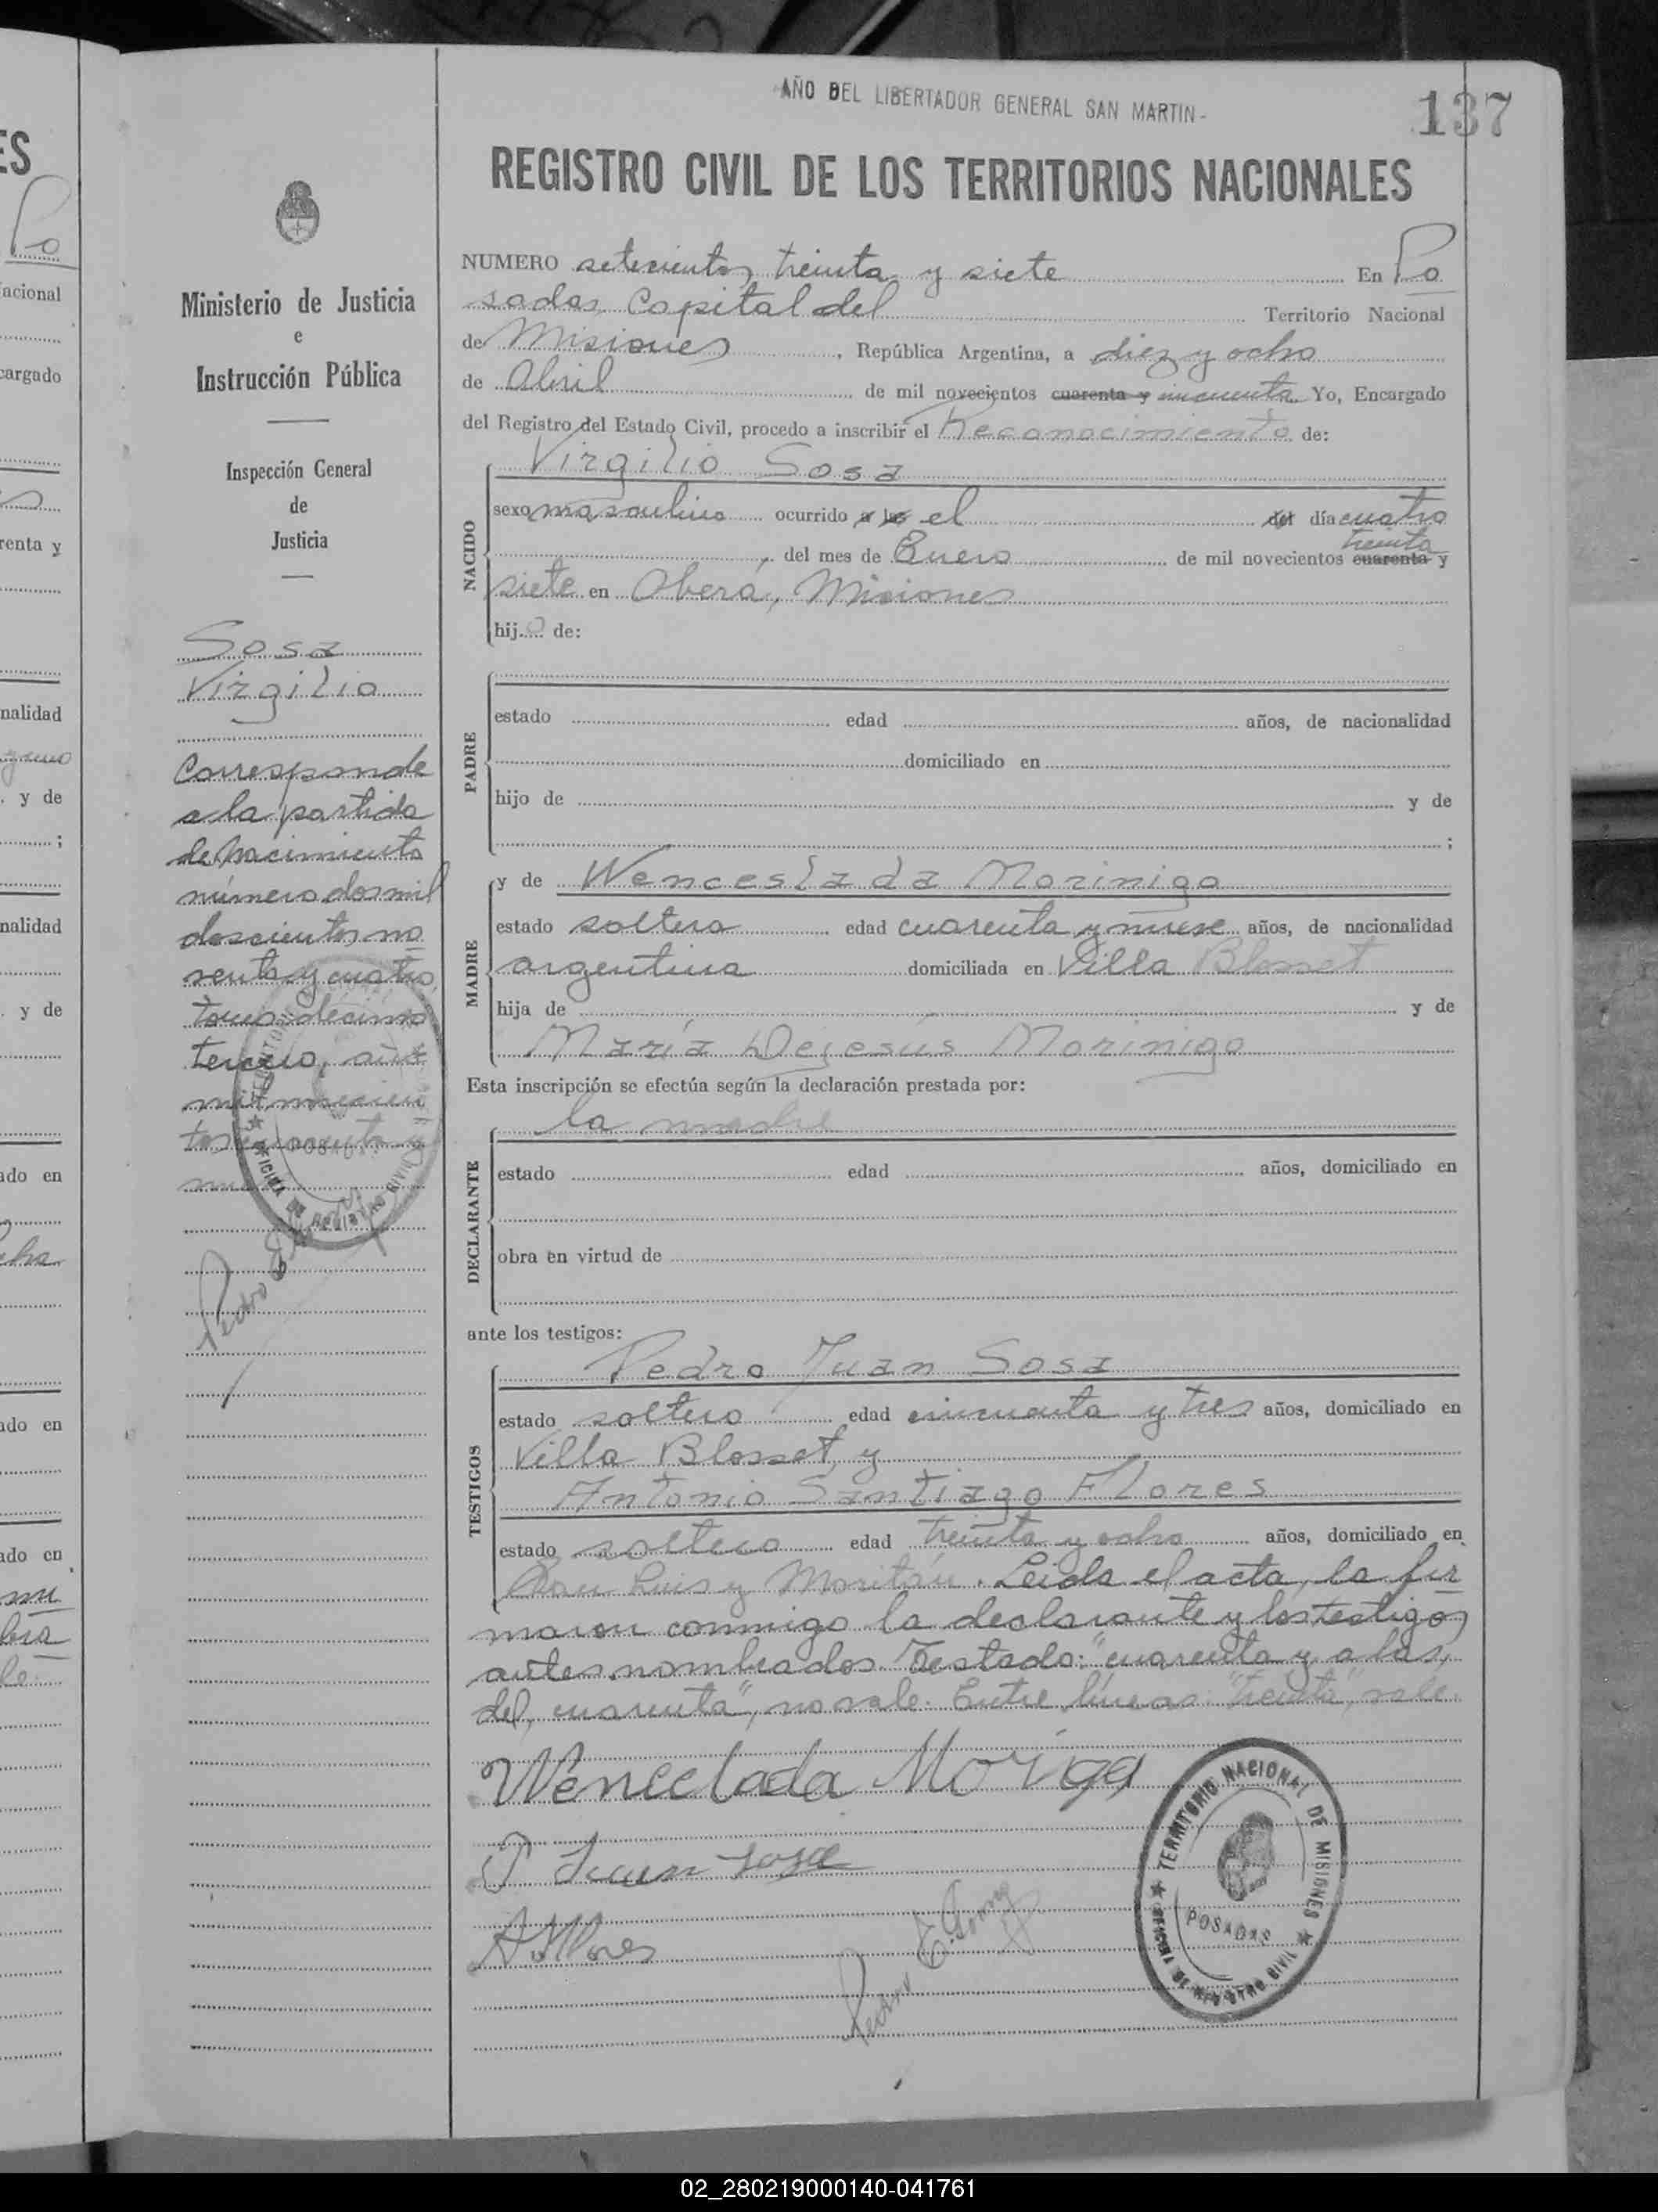 AÑO DEL LIBERTADOR GENERAL SAN MARTIN-
137
REGISTRO CIVIL DE LOS TERRITORIOS NACIONALES
NUMERO setecientos treinta y siete En Po
sadas, Capital del Territorio Nacional
de Misiones, República Argentina, a diez y ocho
de Abril de mil novecientos cuarenta y cincuenta Yo, Encargado
del Registro del Estado Civil, procedo a inscribir el Reconocimiento de:
NACIDO
Virgilio Sosa
sexo masculino ocurrido a las el del día cuatro
treinta
del mes de Enero de mil novecientos cuarenta y
siete en Oberá, Misiones
hijo de:
PADRE
estado edad años, de nacionalidad
domiciliado en
hijo de y de
;
MADRE
y de Wenceslada Morinigo
estado soltera edad cuarenta y nueve años, de nacionalidad
argentina domiciliada en Villa Blosset
hija de y de
María Dejesús Morinigo
Esta inscripción se efectúa según la declaración prestada por:
DECLARANTE
la madre
estado edad años, domiciliado en
obra en virtud de
ante los testigos:
TESTIGOS
Pedro Juan Sosa
estado soltero edad cincuenta y tres años, domiciliado en
Villa Blosset, y
Antonio Santiago Flores
estado soltero edad treinta y ocho años, domiciliado en
San Luis y Moritán. Leida el acta, la fir
maron conmigo la declarante y los testigos
antes nombrados. Testado: "cuarenta y, a las,
del, cuarenta", no vale. Entre líneas: "treinta", vale.
Wenclada Moriga
P Juan Sosa
A S Flores
Pedro E. Gomez
TERRITORIO NACIONAL DE MISIONES
POSADAS
OFICINA DE REGISTRO CIVIL
Ministerio de Justicia
e
Instrucción Pública
Inspección General
de
Justicia
Sosa
Virgilio
Corresponde
a la partida
de nacimiento
número dos mil
doscientos no
venta y cuatro,
tomo décimo
tercero, año
mil novecien
tos cuarenta y
POSADAS
REGISTRO CIVIL
Pedro E. Gomez
ES
Po
acional
cargado
renta y
nalidad
y de
;
nalidad
y de
ado en
ado en
ado en
02_280219000140-041761